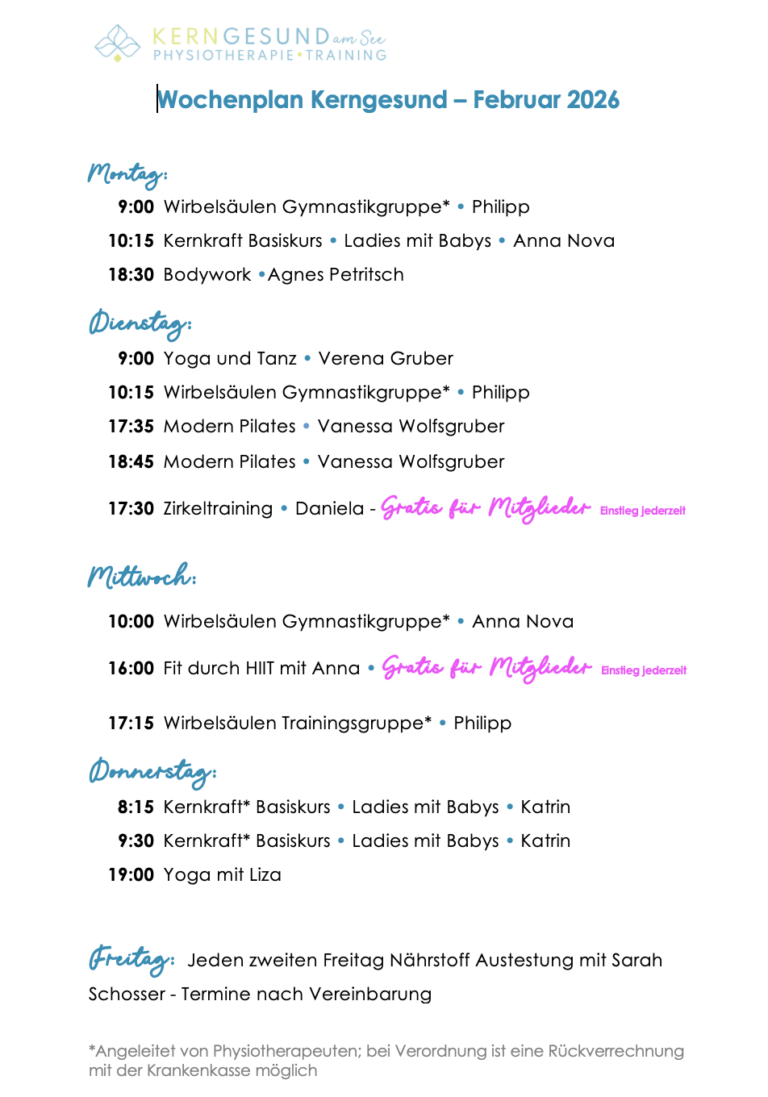 KERNGESUND am See
PHYSIOTHERAPIE•TRAINING
Wochenplan Kerngesund – Februar 2026
Montag:
9:00 Wirbelsäulen Gymnastikgruppe* • Philipp
10:15 Kernkraft Basiskurs • Ladies mit Babys • Anna Nova
18:30 Bodywork •Agnes Petritsch
Dienstag:
9:00 Yoga und Tanz • Verena Gruber
10:15 Wirbelsäulen Gymnastikgruppe* • Philipp
17:35 Modern Pilates • Vanessa Wolfsgruber
18:45 Modern Pilates • Vanessa Wolfsgruber
17:30 Zirkeltraining • Daniela - Gratis für Mitglieder Einstieg jederzeit
Mittwoch:
10:00 Wirbelsäulen Gymnastikgruppe* • Anna Nova
16:00 Fit durch HIIT mit Anna • Gratis für Mitglieder Einstieg jederzeit
17:15 Wirbelsäulen Trainingsgruppe* • Philipp
Donnerstag:
8:15 Kernkraft* Basiskurs • Ladies mit Babys • Katrin
9:30 Kernkraft* Basiskurs • Ladies mit Babys • Katrin
19:00 Yoga mit Liza
Freitag: Jeden zweiten Freitag Nährstoff Austestung mit Sarah
Schosser - Termine nach Vereinbarung
*Angeleitet von Physiotherapeuten; bei Verordnung ist eine Rückverrechnung
mit der Krankenkasse möglich